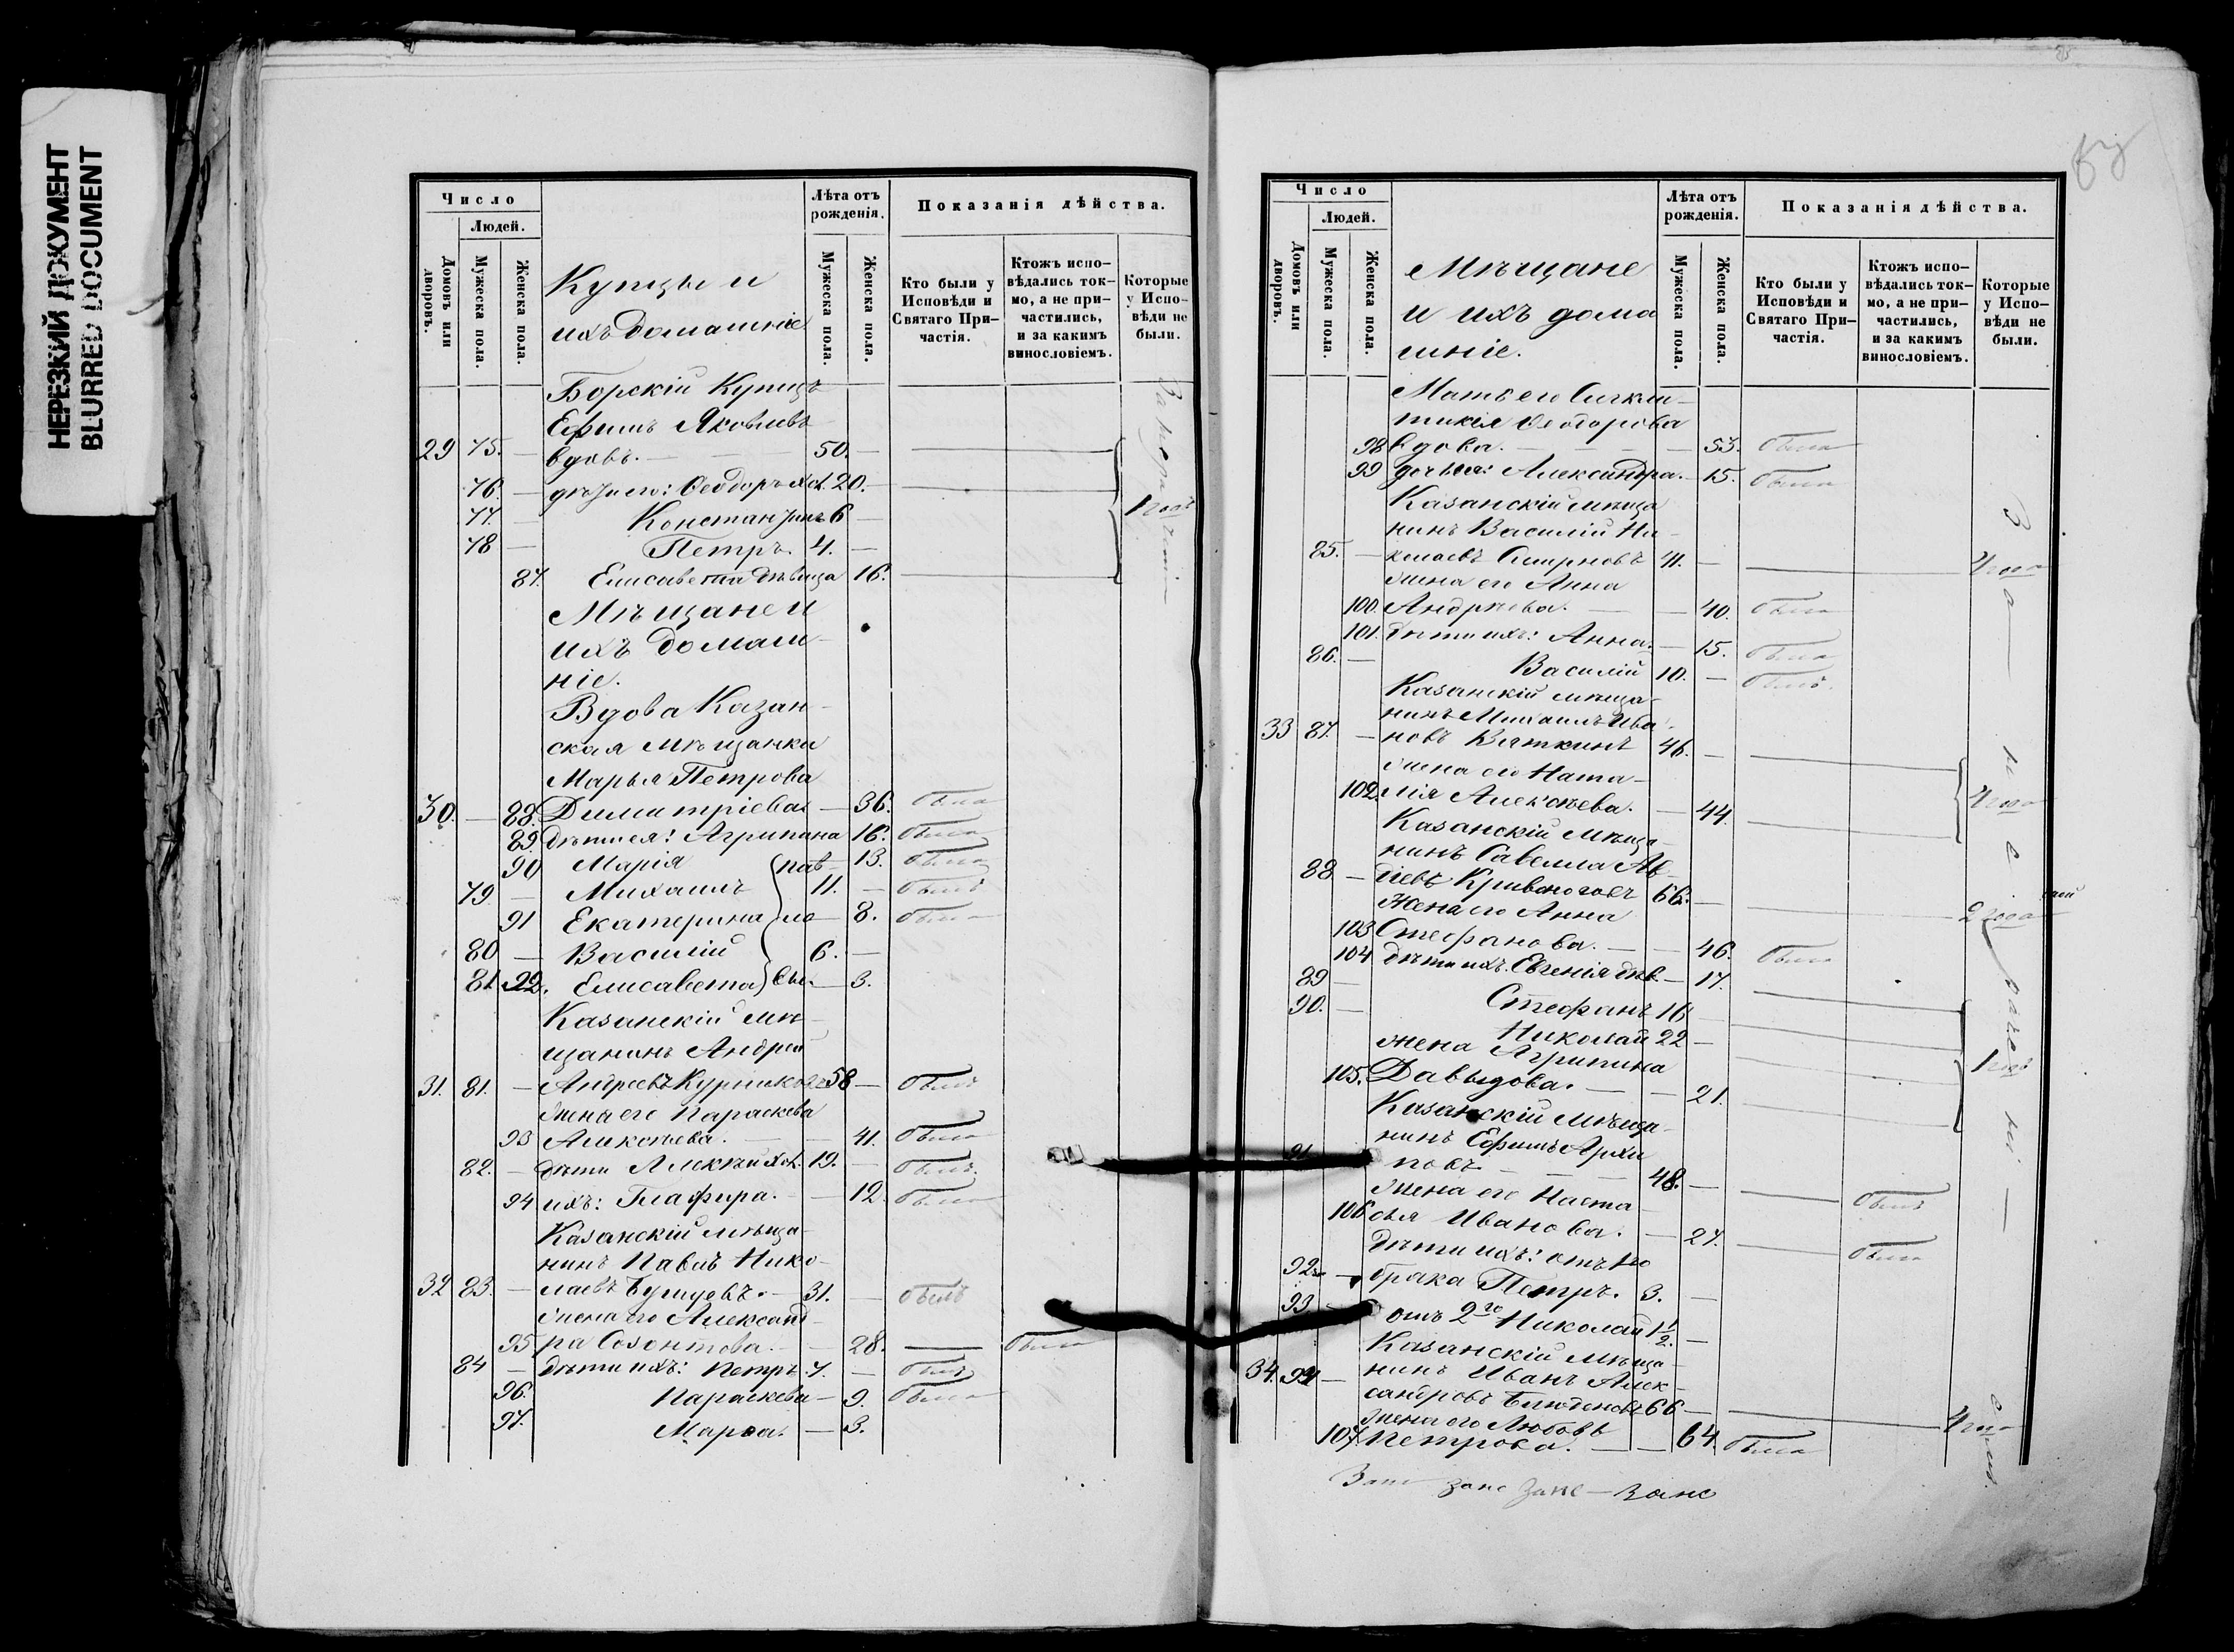 НЕРЕЗКИЙ ДОКУМЕНТ
BLURRED DOCUMENT
Число
Людей.
Домовъ или дворовъ.
Мужеска пола.
Женска пола.
Купцы и
ихъ домашніе
Лѣта отъ рожденія.
Мужеска пола.
Женска пола.
Показанія дѣйства.
Кто были у Исповѣди и Святаго Причастія.
Ктожъ исповѣдались токмо, а не причастились, и за какимъ винословіемъ.
Которые у Исповѣди не были.
Борскій Купецъ
Ефимъ Яковлевъ
29 75. — вдовъ. — 50. —
76. — дѣти его: Ѳеодоръ хол. 20. —
77. — Константинъ 6 — 1 годъ
78 — Петръ. 4. —
87. Елисавета дѣвица 16.
Мѣщане и
ихъ домаш-
ніе.
Вдова Казан-
ская мѣщанка
Марья Петрова
30. — 88. Димитріева — 36. была
89. дѣти ея: Агрипина 16. была
90 Марія пав- 13. была
79 — Михаилъ 11. — былъ
91 Екатерина ло — 8. была
80 — Василій 6. —
81. 92. Елисавета вы. — 3.
Казанскій мѣ-
щанинъ Андрей
31. 81. — Андреевъ Куршаковъ 58 — былъ
жена его Параскева
93 Алексѣева. — 41. была
82. — дѣти Алексѣй хол. 19. — былъ.
94 ихъ: Глафира. — 12. была
Казанскій мѣща-
нинъ Павелъ Нико-
32 83. — лаевъ — 31. — былъ
жена его Александ-
95 ра Созонтова. — 28. — была
84 — дѣти ихъ: Петръ 7. — былъ
96. Параскева — 9. была
97. Марѳа. — 3.
67
Число
Людей.
Домовъ или дворовъ.
Мужеска пола.
Женска пола.
Мѣщане
и ихъ дома
шніе.
Лѣта отъ рожденія.
Мужеска пола.
Женска пола.
Показанія дѣйства.
Кто были у Исповѣди и Святаго Причастія.
Ктожъ исповѣдались токмо, а не причастились, и за какимъ винословіемъ.
Которые у Исповѣди не были.
Мать его Синкли-
тикія Ѳеодорова
98 вдова. — 53. была
99 дочь ея: Александра. — 15. была
Казанскій мѣща
нинъ Василій Ни-
85. — колаевъ Смирновъ 41. — 4 года
жена его Анна
100. Андреева. — 40. была
101. дѣти ихъ: Анна. — 15. была
86. — Василій 10. — былъ.
Казанскій мѣща-
нинъ Михаилъ Ива-
33 87. — новъ Вяткинъ 46. —
жена его Ната-
102. лія Алексѣева. — 44. 4 года
Казанскій мѣща-
нинъ Савелла Ав-
88 — діевъ Кривоноговъ 66. — 2 года
жена его Анна
103 Стефанова. — 46. была
104 дѣти ихъ. Евгенія дѣв. — 17.
89 — Стефанъ 16
90. — Николай 22 —
жена Агрипина 1 годъ
105. Давыдова. — 21.
Казанскій мѣща-
нинъ Ефимъ Архи
91 повъ. — 48. — былъ
жена его Наста-
106 сья Иванова. — 27. была
дѣти ихъ: отъ 1го
92. — брака Петръ. 3. —
93 — отъ 2го Николай 1½. —
Казанскій мѣща-
34. 94 — нинъ Иванъ Алек-
сандровъ 66 — 4 года
жена его Любовь
107 Петрова. — 64. была